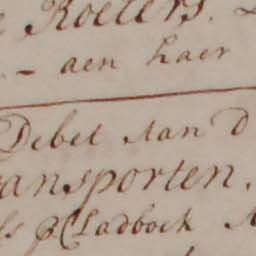 Roeters.
- aen haer
Debet Aan D
ansporten.
ls p Cladboek